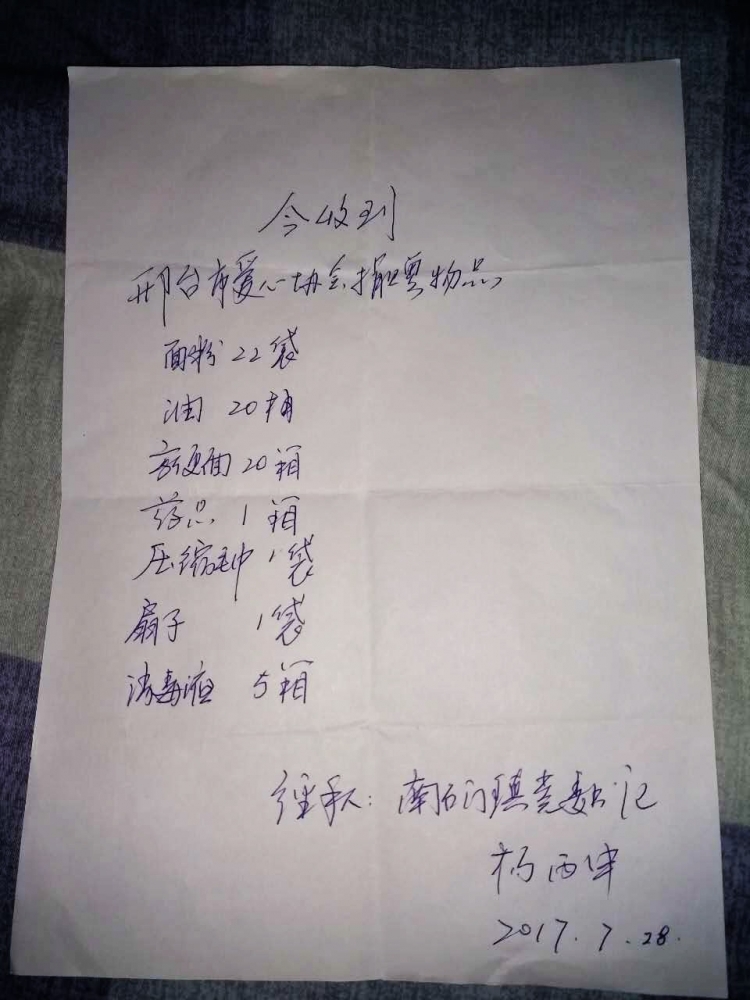 今收到
邢台市爱心协会捐赠物品
面粉 22袋
油 20桶
方便面 20箱
药品 1箱
压缩毛巾 1袋
扇子 1袋
消毒液 5箱
经手人：南石门镇党委书记
杨西
2017.7.28.